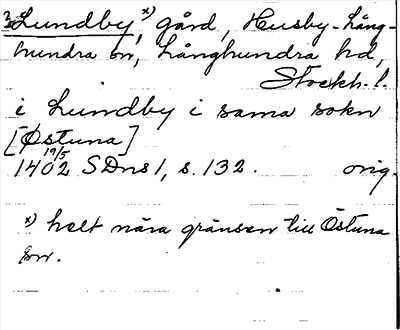 2 Lundby, x) gård, Husby-Lång-
hundra sn, Långhundra hd,
Stockh. l.
i Lundby i sama sokn
[Östuna]
1402 19/5 SDns 1, s. 132. orig.
x) helt nära gränsen till Östuna
sn.